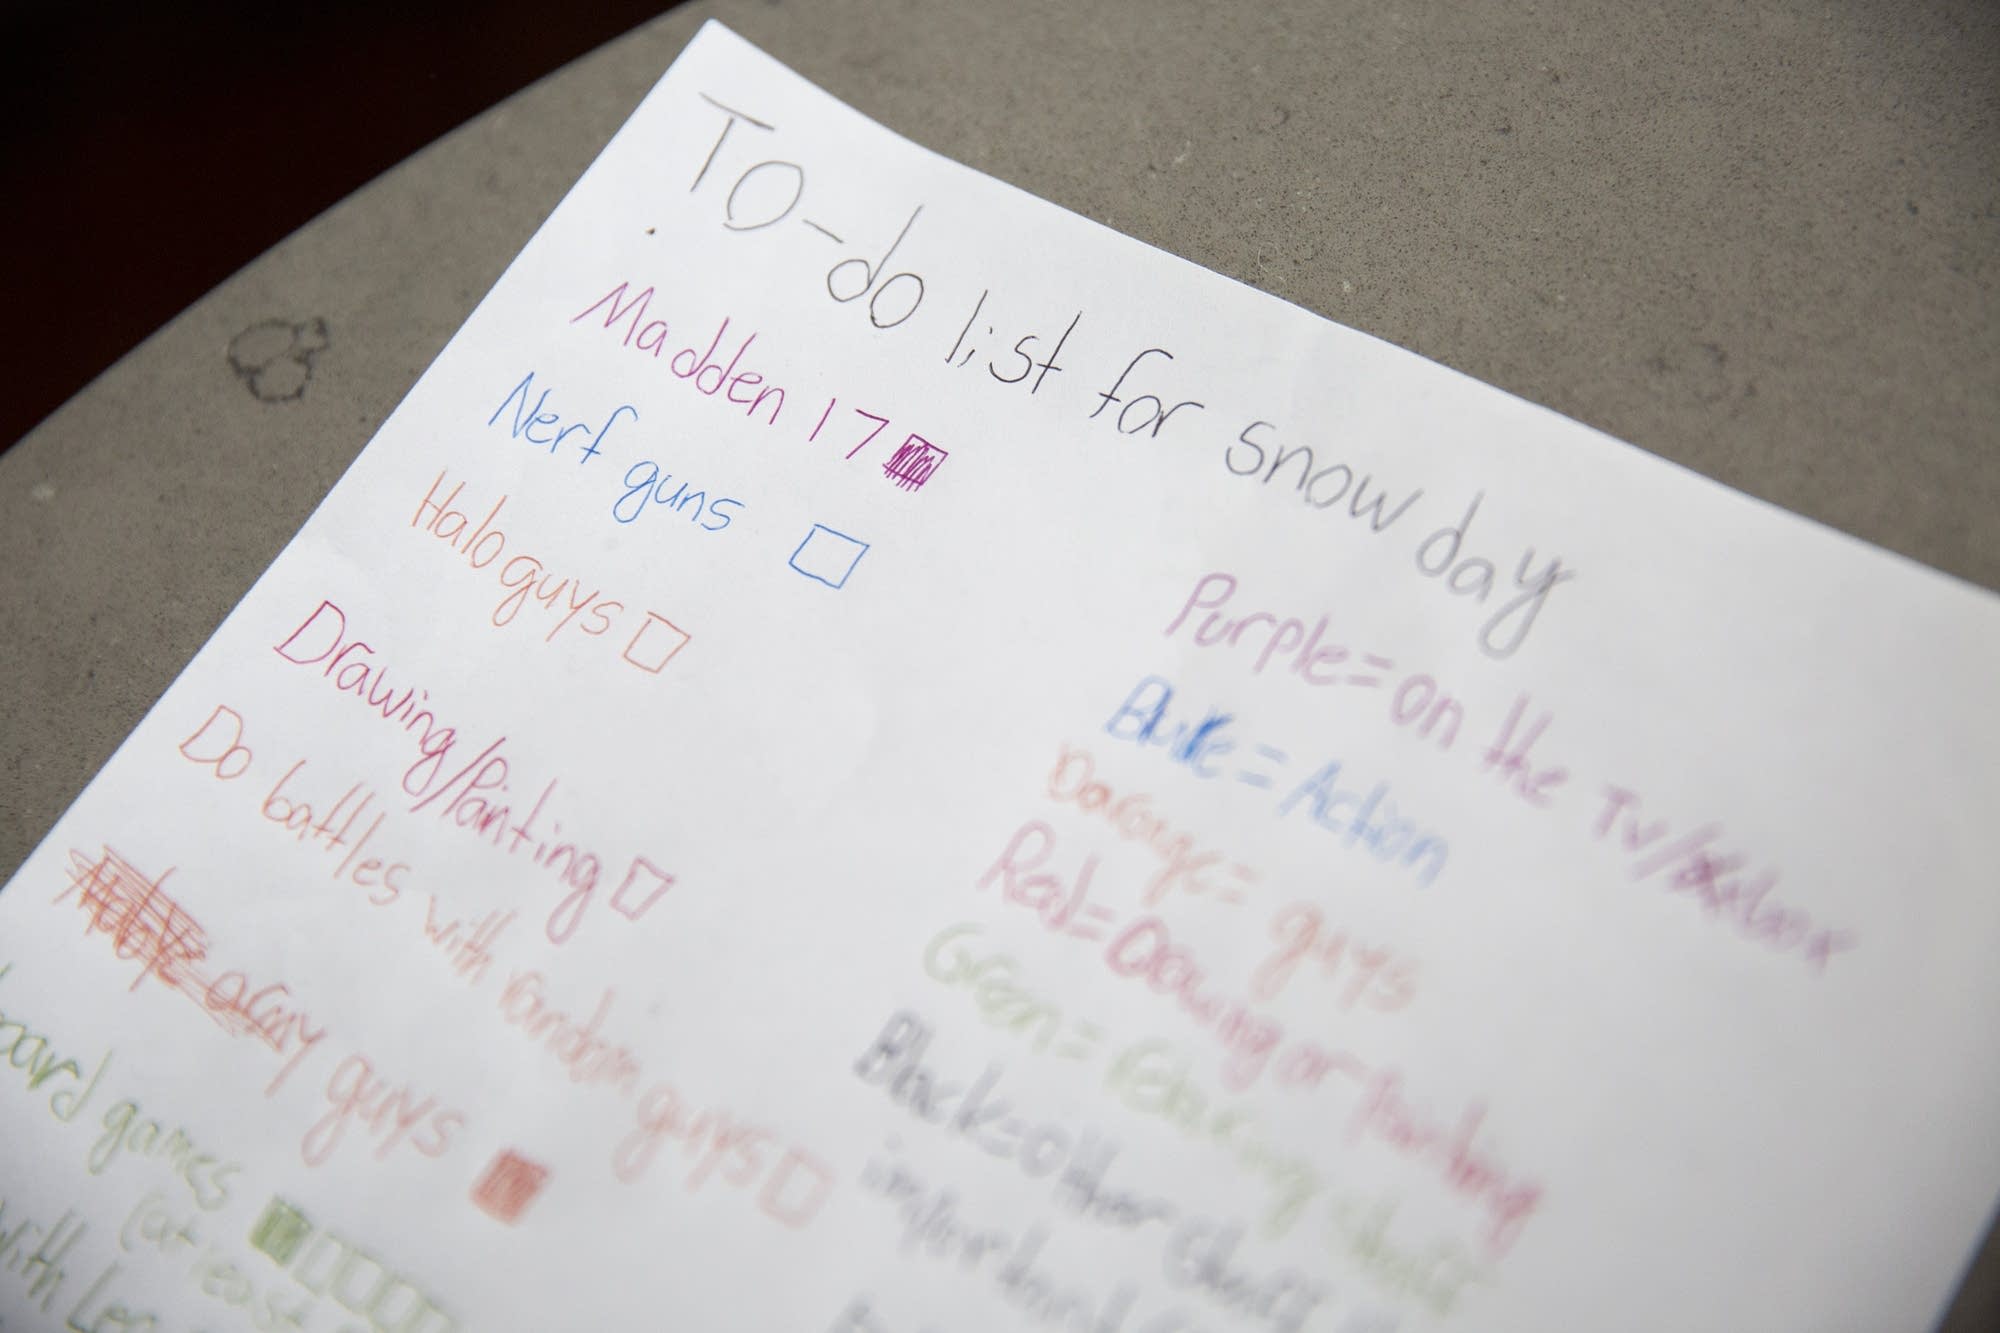 TO-do list for snow day
Madden 17
Nerf guns
Halo guys
Drawing/Painting
Do battles with random guys
army guys
board games
(at least
with
Purple= on the TV/Xbox
Blue= Action
Orange= guys
Red= Drawing or Painting
Green= stuff
Black= Other stuff
important